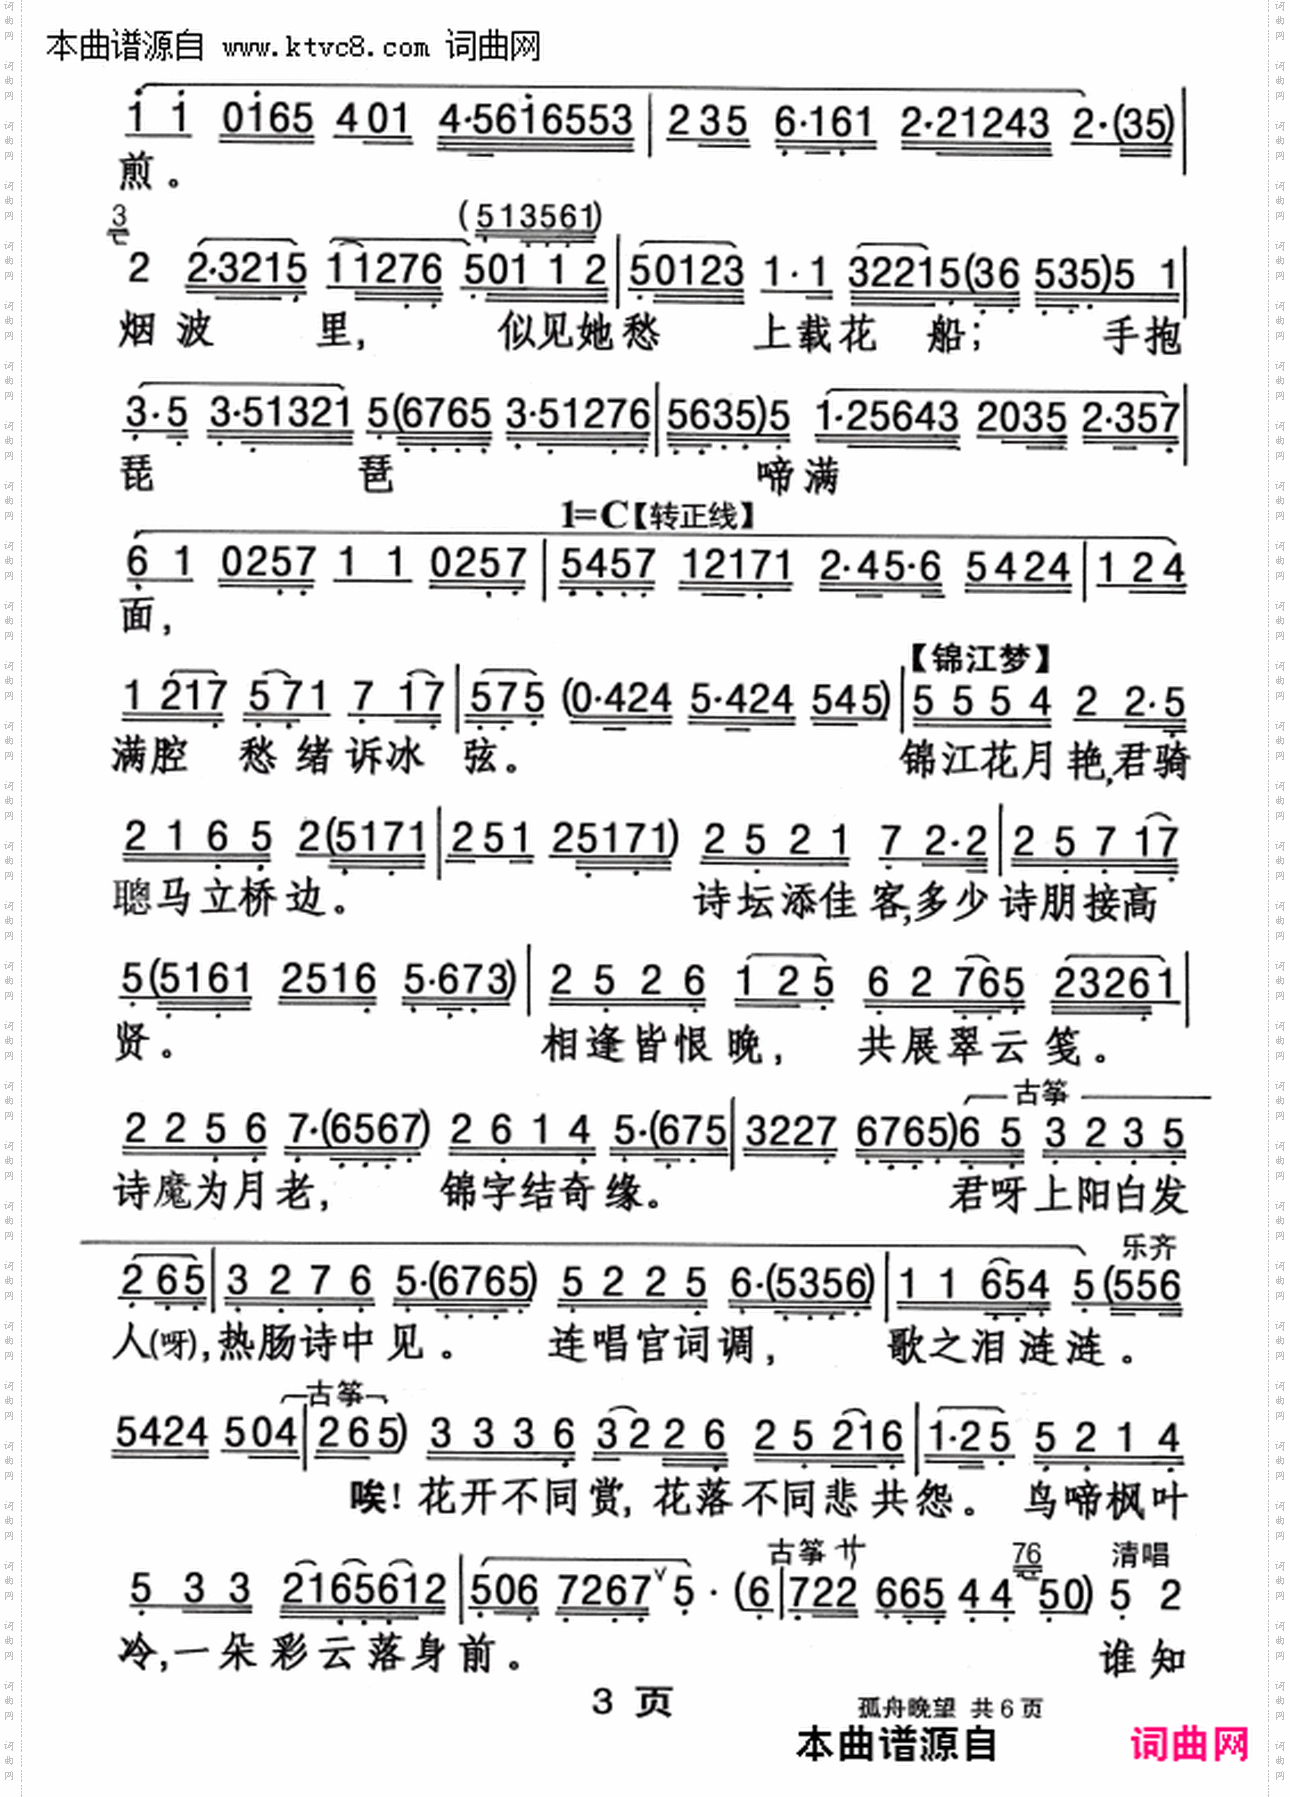 本曲谱源自 www.ktvc8.com 词曲网
1 1 0165 401 4·56165​53 | 235 6·161 2·21243 2·(35) |
煎。
3
(513561)
2 2·3215 11276 501 1 2 | 50123 1·1 32215(36 535)5 1 |
烟波 里, 似见她愁 上载花 船; 手抱
3·5 3·51321 5(6765 3·51276 | 5635)5 1·25643 2035 2·357 |
琵 琶 啼满
1=C【转正线】
6 1 0257 1 1 0257 | 5457 12171 2·45·6 5424 | 124
面,
【锦江梦】
1 217 571 7 17 | 575 (0·424 5·424 545) | 5554 2 2·5
满腔 愁绪诉冰 弦。 锦江花月艳,君骑
2165 2(5171 | 251 25171) 2521 7 2·2 | 25717
聰马立桥边。 诗坛添佳客,多少诗朋接高
5(5161 2516 5·673) | 2526 125 62765 23261 |
贤。 相逢皆恨晚, 共展翠云笺。
古筝
2256 7·(6567) 2614 5·(675 | 3227 6765)65 3235
诗魔为月老, 锦字结奇缘。 君呀上阳白发
乐齐
265 | 3276 5·(6765) 5225 6·(5356) | 11654 5(556
人(呀),热肠诗中见。 连唱宫词调, 歌之泪涟涟。
古筝
5424 504 | 265) 3336 3226 25216 | 1·25 5214
唉!花开不同赏,花落不同悲共怨。 鸟啼枫叶
古筝 サ 76 清唱
5 33 21656​12 | 506 7267ˇ5·(6 | 722 665 44 50) 5 2
冷,一朵彩云落身前。 谁知
3 页
孤舟晚望 共6页
本曲谱源自 词曲网